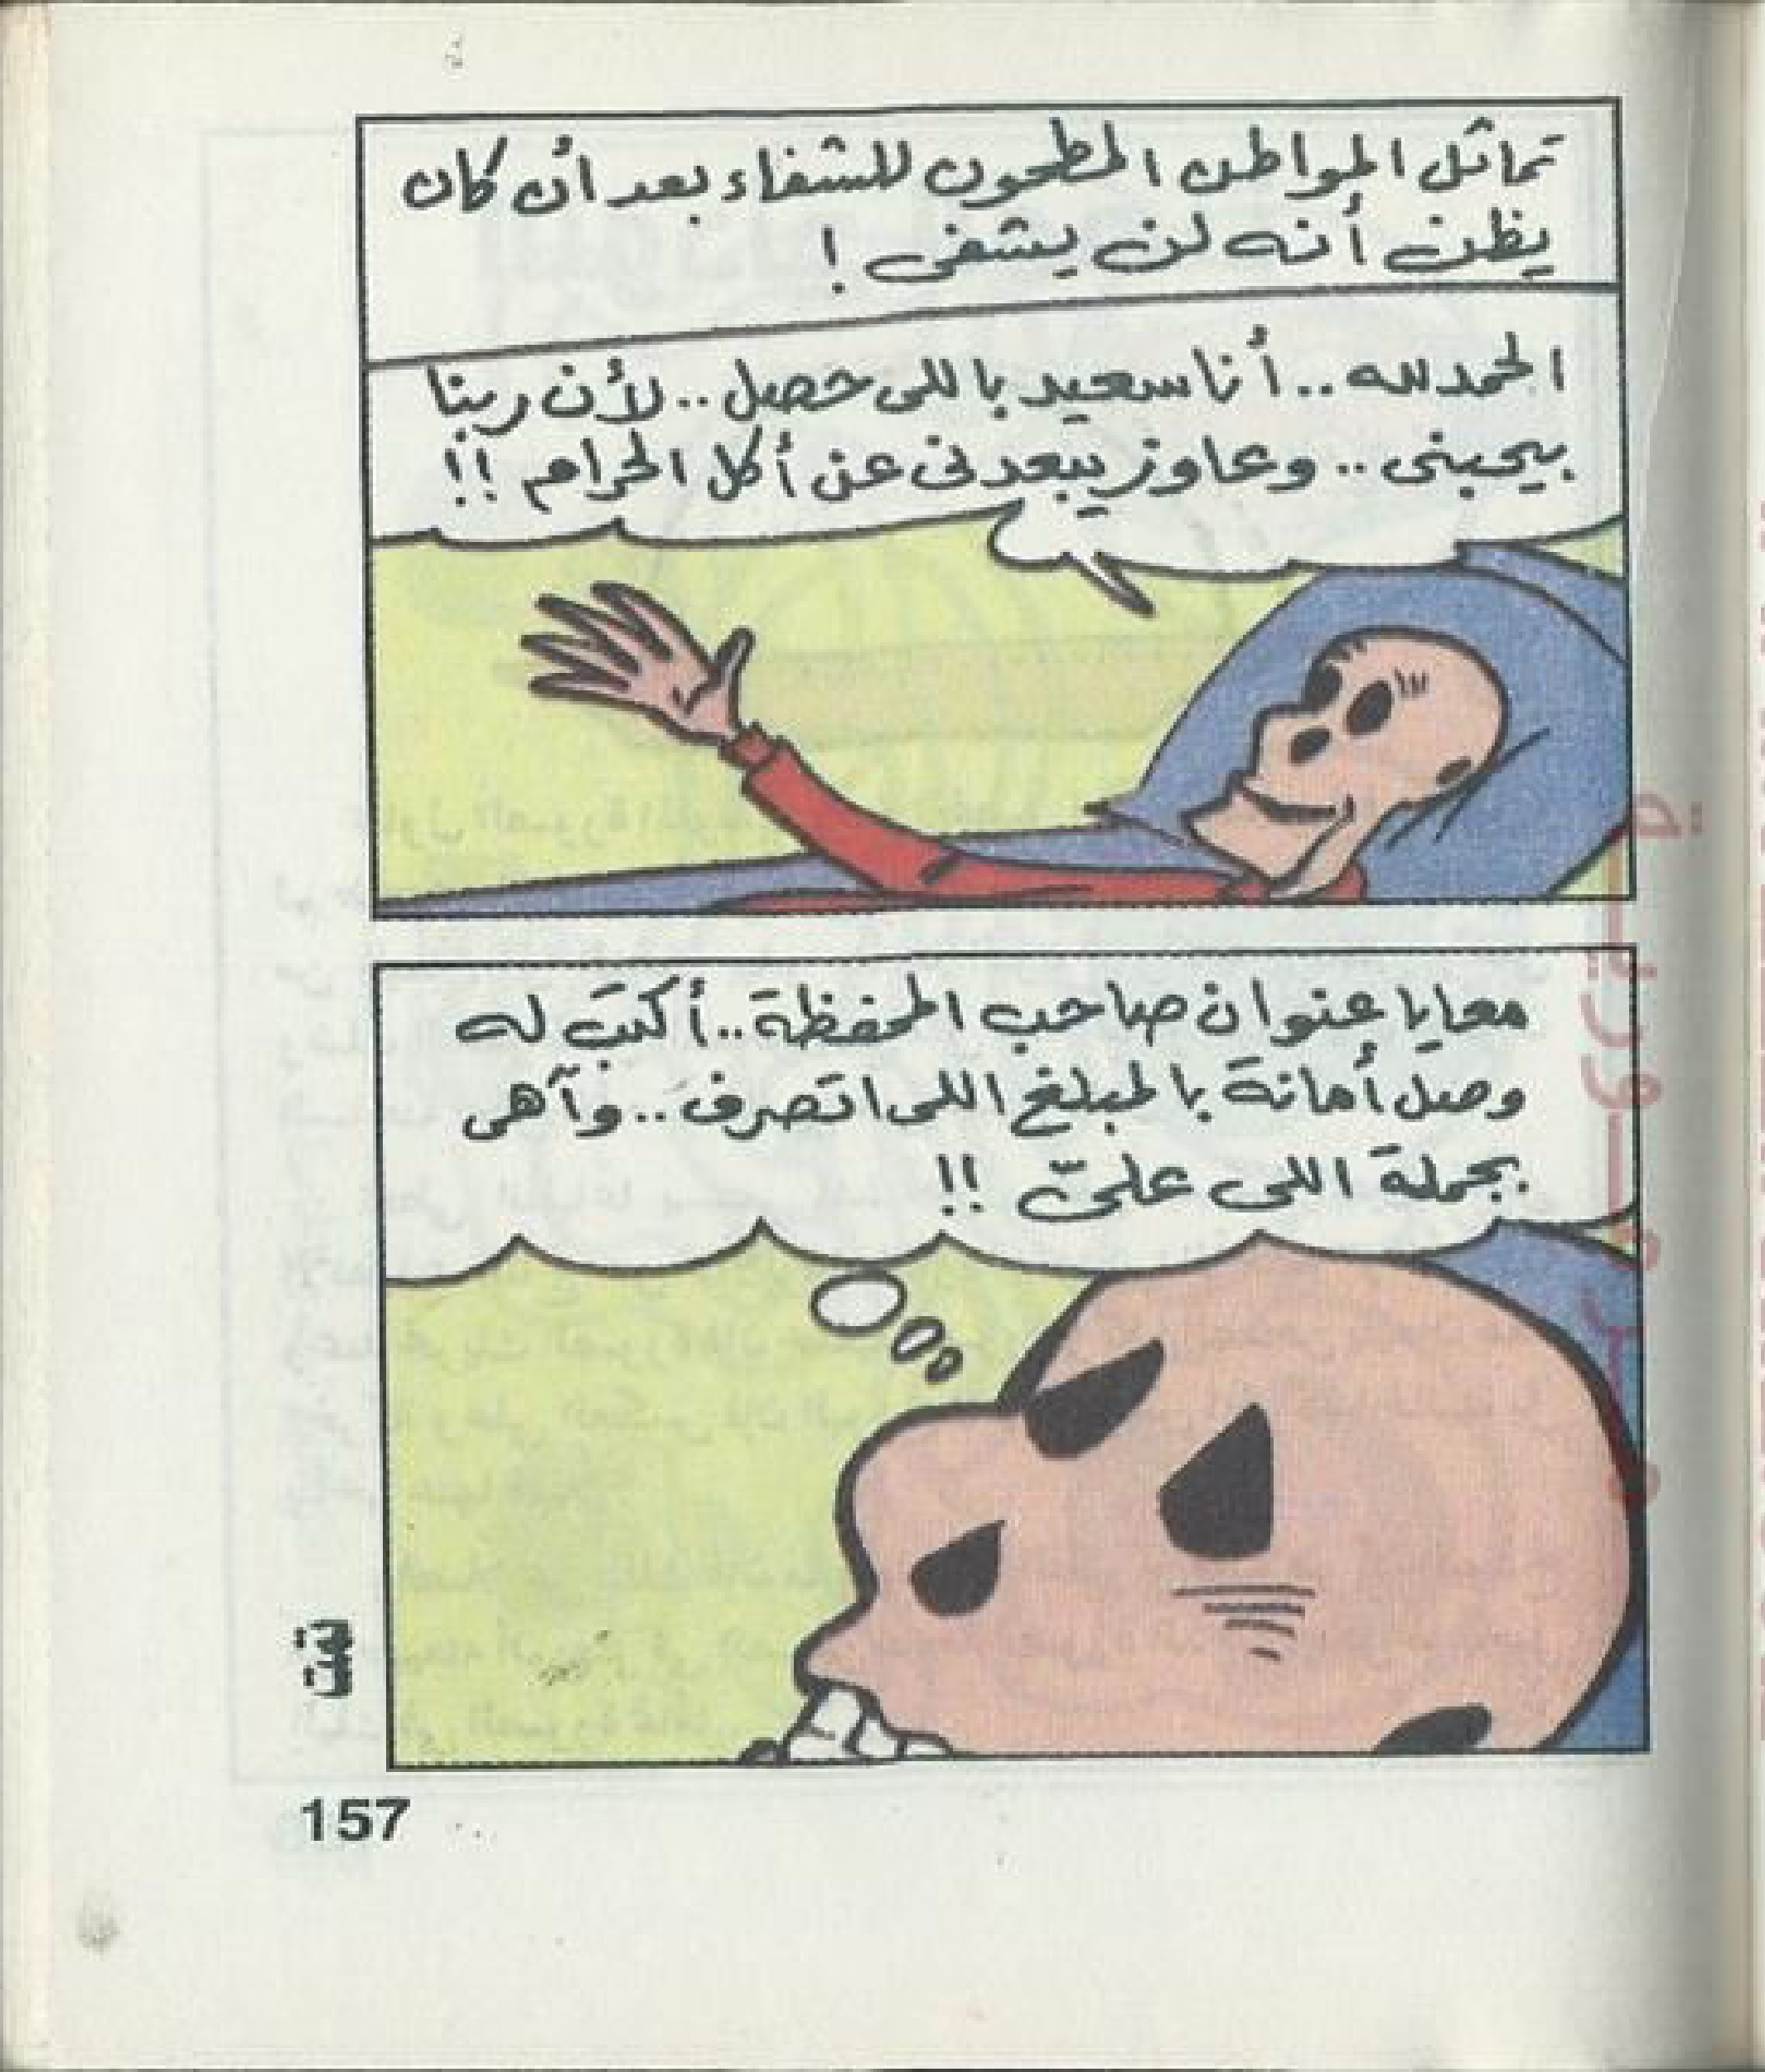 تماثل المواطن المطحون للشفاء بعد أن كان
يظن أنه لن يشفى !
الحمد لله .. أنا سعيد باللى حصل .. لأن ربنا
بيحبنى .. وعاوز يبعدنى عن أكل الحرام !!
معايا عنوان صاحب المحفظة .. أكتب له
وصل أمانة بالمبلغ اللى اتصرف .. وآهى
بجملة اللى علىّ !!
تمت
157